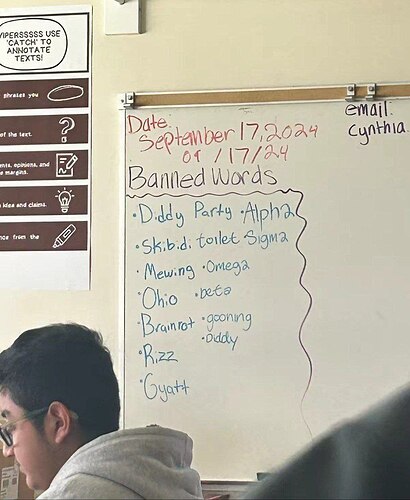 VIPERSSSSS USE
'CATCH' TO
ANNOTATE
TEXTS!
phrases you
of the text.
nts, opinions, and
margins.
idea and claims.
from the
Date:
September 17, 2024
09/17/24
Banned Words
• Diddy Party • Alpha
• Skibidi toilet • Sigma
• Mewing • Omega
• Ohio • beta
• Brainrot • gooning
• Diddy
• Rizz
• Gyatt
email:
cynthia